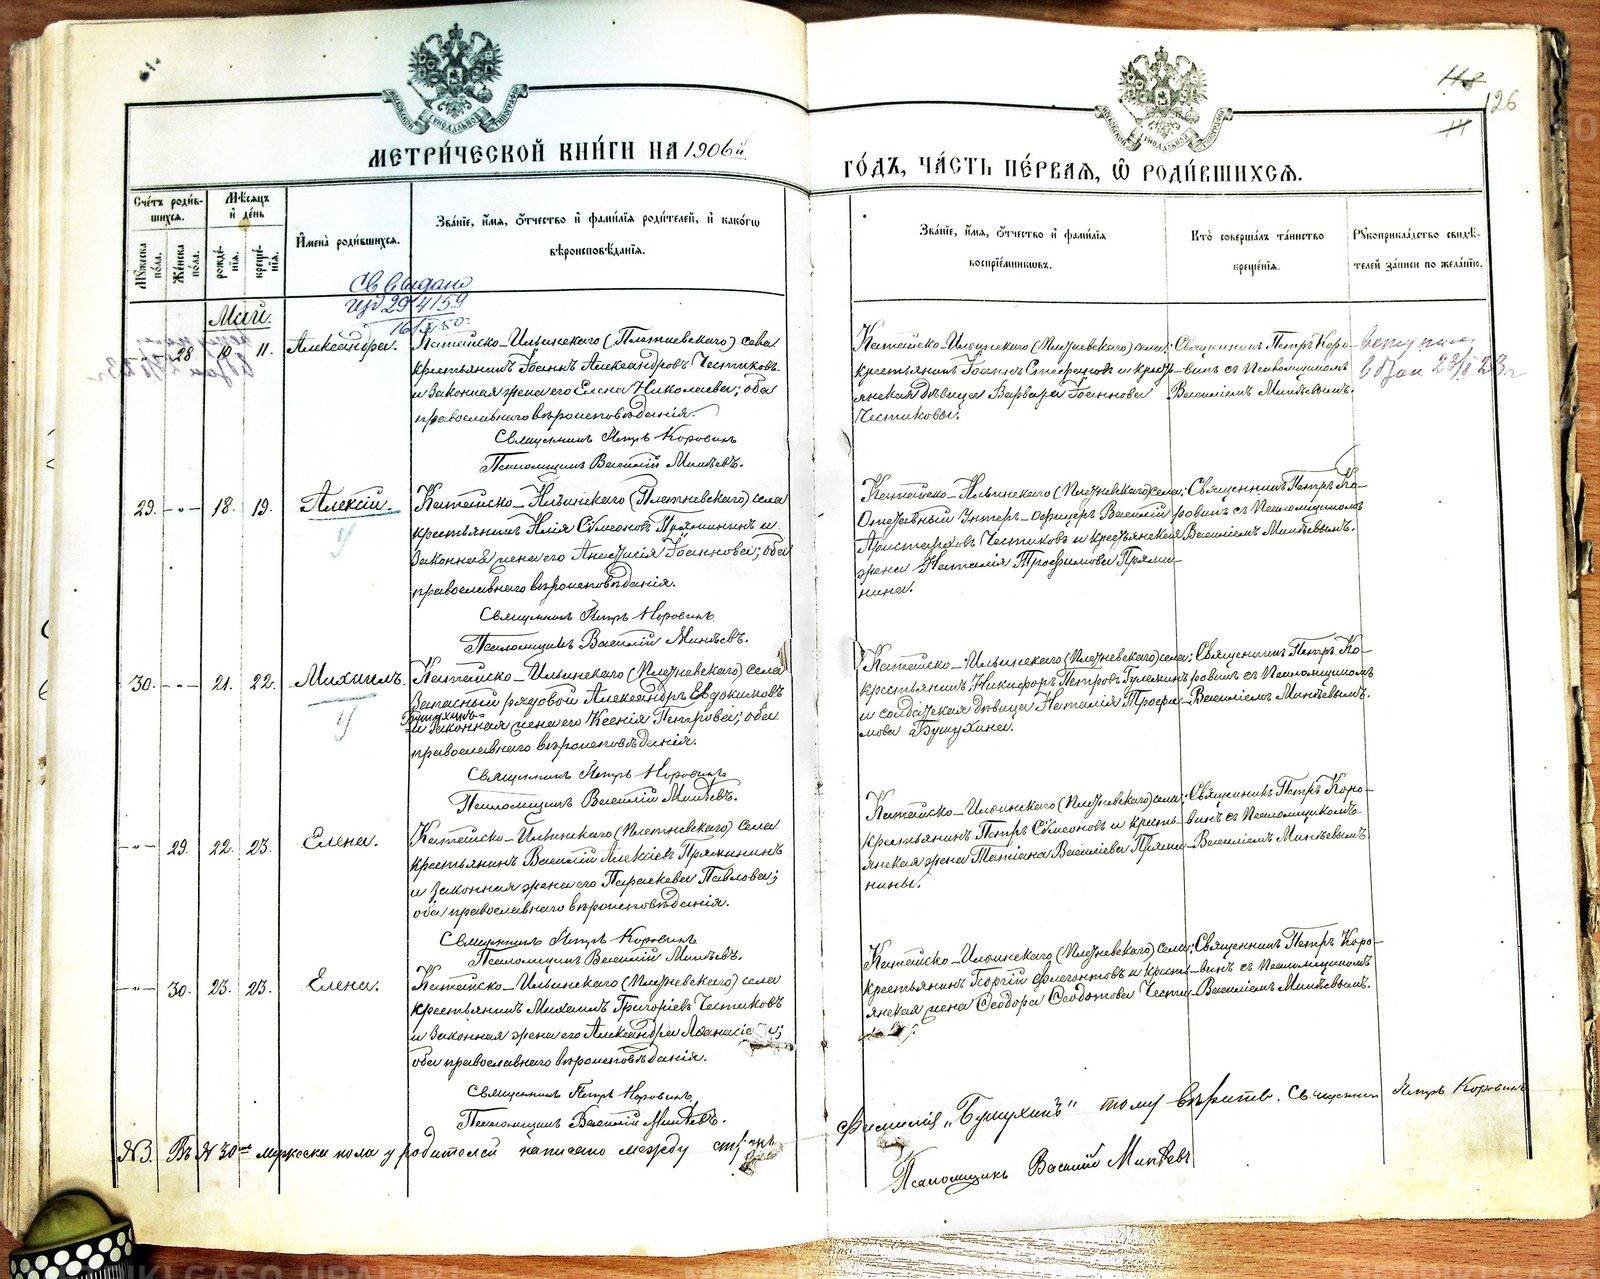 МЕТРИ́ЧЕСКОЙ КНИ́ГИ НА 1906й
ГО́ДЪ, ЧА́СТЬ ПЕ́РВАЯ, Ѽ РОДИ́ВШИХСЯ.
118
126
Сче́тъ роди́в-
шихся.
Му́жеска по́ла.
Же́нска по́ла.
Мѣ́сяцъ
и҆ де́нь
рожде́-
нїя.
креще́-
нїя.
И҆мена̀ роди́вшихся.
Зва́нїе, и҆́мя, ѻ҆́тчество и҆ фами́лїя роди́телей, и҆ како́гѡ
вѣроисповѣ́данїя.
Зва́нїе, и҆́мя, ѻ҆́тчество и҆ фами́лїя
воспрїе́мниковъ.
Кто̀ соверша́лъ та́инство
креще́нїя.
Рꙋкоприкла́дство свидѣ́-
телей за́писи по жела́нїю.
Св выдано
Май.
28 10. 11. Александра.
Катайско-Ильинскаго (Плетневскаго) села
крестьянинъ Іоаннъ Александровъ Честиковъ
и законная жена его Елена Николаева; оба
православнаго вѣроисповѣданія.
Священникъ Петръ Коровинъ
Псаломщикъ Василій Минѣевъ.
Катайско-Ильинскаго (Плетневскаго) села;
крестьянинъ Іоаннъ Стефановъ и кресть-
янская дѣвица Варвара Іоаннова
Честиковы.
Священникъ Петръ Коро-
винъ съ Псаломщикомъ
Василіемъ Минѣевымъ.
вступила
в брак
29. -„- 18. 19. Алексій.
Катайско-Ильинскаго (Плетневскаго) села
крестьянинъ Илія Сѵмеоновъ Прянининъ и
законная жена его Анастасія Іоаннова; оба
православнаго вѣроисповѣданія.
Священникъ Петръ Коровинъ
Псаломщикъ Василій Минѣевъ.
Катайско-Ильинскаго (Плетневскаго) села;
Отставный Унтеръ-офицеръ Василій
Аристарховъ Честиковъ и крестьянская
жена Наталія Трофимова Пряни-
нина.
Священникъ Петръ Ко-
ровинъ съ Псаломщикомъ
Василіемъ Минѣевымъ.
30. -„- 21. 22. Михаилъ.
Катайско-Ильинскаго (Плетневскаго) села
Запасный рядовой Александръ Евдокимовъ
Бушухинъ
и законная жена его Ксенія Петрова; оба
православнаго вѣроисповѣданія.
Священникъ Петръ Коровинъ
Псаломщикъ Василій Минѣевъ.
Катайско-Ильинскаго (Плетневскаго) села;
крестьянинъ Никифоръ Петровъ Гулякинъ
и солдатская дѣвица Наталія Трофи-
мова Бушухина.
Священникъ Петръ Ко-
ровинъ съ Псаломщикомъ
Василіемъ Минѣевымъ.
-„- 29. 22. 23. Елена.
Катайско-Ильинскаго (Плетневскаго) села
крестьянинъ Василій Алексіевъ Прянининъ
и законная жена его Параскева Павлова;
оба православнаго вѣроисповѣданія.
Священникъ Петръ Коровинъ
Псаломщикъ Василій Минѣевъ.
Катайско-Ильинскаго (Плетневскаго) села;
крестьянинъ Петръ Сѵмеоновъ и кресть-
янская жена Татіана Василіева Пряни-
нины.
Священникъ Петръ Коро-
винъ съ Псаломщикомъ
Василіемъ Минѣевымъ.
-„- 30. 23. 23. Елена.
Катайско-Ильинскаго (Плетневскаго) села
крестьянинъ Михаилъ Григоріевъ Честиковъ
и законная жена его Александра Аѳанасіева;
оба православнаго вѣроисповѣданія.
Священникъ Петръ Коровинъ
Псаломщикъ Василій Минѣевъ.
Катайско-Ильинскаго (Плетневскаго) села;
крестьянинъ Георгій Флегонтовъ и кресть-
янская жена Ѳеодора Ѳеодотова Чести-
Священникъ Петръ Коро-
винъ съ Псаломщикомъ
Василіемъ Минѣевымъ.
NB. Въ № 30мъ мужеска пола у родителей написано между строкъ
фамилія „Бушухинъ" тому вѣрить. Священникъ Петръ Коровинъ
Псаломщикъ Василій Минѣевъ